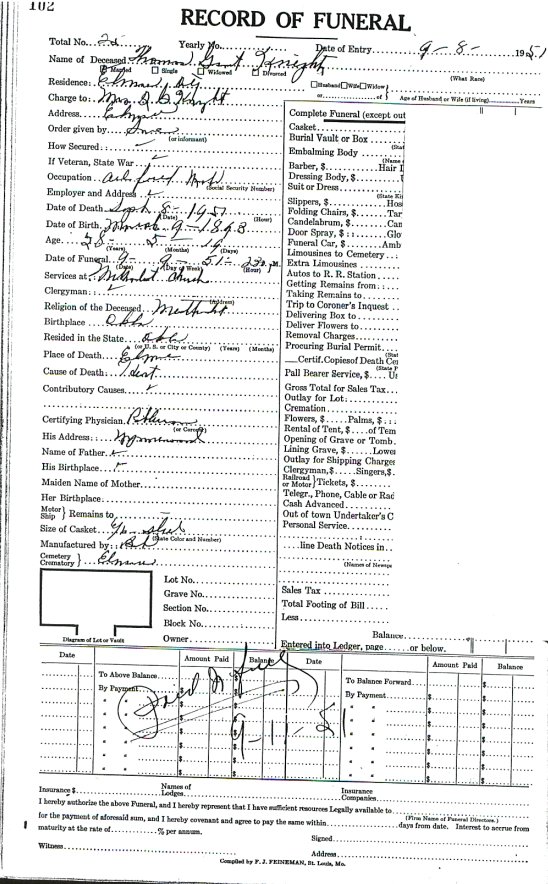 102
RECORD OF FUNERAL
Total No. 25 Yearly No. Date of Entry 9-8- 1951
Name of Deceased Thomas Grant Knight
Married Single Widowed Divorced (What Race)
Residence: Elmore City Husband Wife Widow
or of Age of Husband or Wife (if living) Years
Charge to: Mrs Knight
Address Elmore
Order given by Same
(or informant)
How Secured:
If Veteran, State War
Occupation
Employer and Address (Social Security Number)
Date of Death Sept. 8-1951
(Date) (Hour)
Date of Birth 9-1893
Age
(Years) (Months) (Days)
Date of Funeral 9- 9- 51- 2:30 P.M.
(Date) (Day of Week) (Hour)
Services at Methodist Church
Clergyman: (Address)
Religion of the Deceased Methodist
Birthplace Okla
Resided in the State Okla
(or U. S. or City or County) (Years) (Months)
Place of Death: Elmore
Cause of Death:
Contributory Causes
Certifying Physician
(or Coroner)
His Address: Wynnewood
Name of Father
His Birthplace
Maiden Name of Mother
Her Birthplace:
Motor Ship Remains to
Size of Casket
(State Color and Number)
Manufactured by:
Cemetery Crematory Elmore
Diagram of Lot or Vault
Lot No.
Grave No.
Section No.
Block No.
Owner
Complete Funeral (except out
Casket
Burial Vault or Box
(Stat
Embalming Body
(Name
Barber, $ Hair
Dressing Body, $
Suit or Dress
(State Ki
Slippers, $ Hos
Folding Chairs, $ Tar
Candelabrum, $ Can
Door Spray, $ Glo
Funeral Car, $ Amb
Limousines to Cemetery
Extra Limousines
Autos to R. R. Station
Getting Remains from
Taking Remains to
Trip to Coroner's Inquest
Delivering Box to
Deliver Flowers to
Removal Charges
Procuring Burial Permit
(Stat
Certif. Copies of Death Cer
(State P
Pall Bearer Service, $ Us
Gross Total for Sales Tax
Outlay for Lot:
Cremation
Flowers, $ Palms, $
Rental of Tent, $ of Tem
Opening of Grave or Tomb
Lining Grave, $ Lowe
Outlay for Shipping Charges
Clergyman, $ Singers, $
Railroad or Motor Tickets, $
Telegr., Phone, Cable or Rad
Cash Advanced
Out of town Undertaker's C
Personal Service
line Death Notices in
(Names of Newspa
Sales Tax
Total Footing of Bill
Less
Balance
Entered into Ledger, page or below.
Date Amount Paid Balance Date Amount Paid Balance
To Above Balance $ To Balance Forward $
By Payment $ By Payment $
Paid In full
9-11-51
Insurance $ Names of Lodges Insurance Companies
I hereby authorize the above Funeral, and I hereby represent that I have sufficient resources Legally available to
(Firm Name of Funeral Directors.)
for the payment of aforesaid sum, and I hereby covenant and agree to pay the same within days from date. Interest to accrue from
maturity at the rate of % per annum.
Signed
Witness
Address
Compiled by F. J. FEINEMAN, St. Louis, Mo.